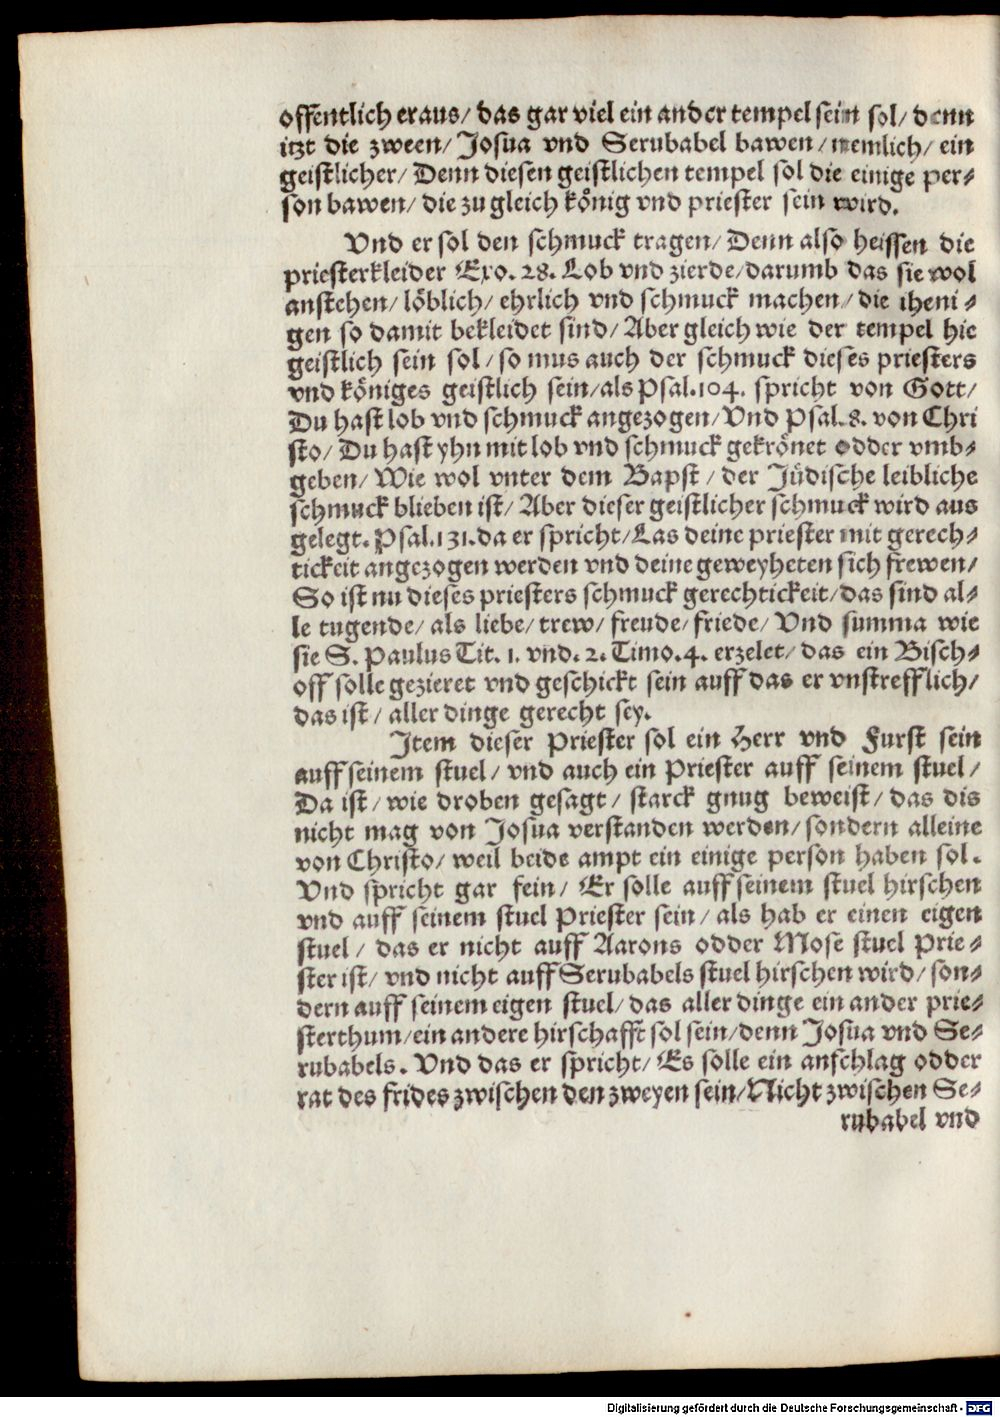 offentlich eraus/ das gar viel ein ander tempel sein sol/ denn
itzt die zween/ Josua vnd Serubabel bawen/ nemlich/ ein
geistlicher/ Denn diesen geistlichen tempel sol die einige per-
son bawen/ die zu gleich könig vnd priester sein wird.
Vnd er sol den schmuck tragen/ Denn also heissen die
priesterkleider Exo. 28. Lob vnd zierde/ darumb das sie wol
anstehen/ löblich/ ehrlich vnd schmuck machen/ die iheni-
gen so damit bekleidet sind/ Aber gleich wie der tempel hie
geistlich sein sol/ so mus auch der schmuck dieses priesters
vnd königes geistlich sein/ als Psal. 104. spricht von Gott/
Du hast lob vnd schmuck angezogen/ Vnd Psal. 8. von Chri
sto/ Du hast yhn mit lob vnd schmuck gekrönet odder vmb-
geben/ Wie wol vnter dem Bapst/ der Jüdische leibliche
schmuck blieben ist/ Aber dieser geistlicher schmuck wird aus
gelegt. Psal. 131. da er spricht/ Las deine priester mit gerech-
tickeit angezogen werden vnd deine geweyheten sich frewen/
So ist nu dieses priesters schmuck gerechtickeit/ das sind al-
le tugende/ als liebe/ trew/ freude/ friede/ Vnd summa wie
sie S. Paulus Tit. 1. vnd. 2. Timo. 4. erzelet/ das ein Bisch-
off solle gezieret vnd geschickt sein auff das er vnstrefflich/
das ist/ aller dinge gerecht sey.
Item dieser Priester sol ein Herr vnd Furst sein
auff seinem stuel/ vnd auch ein Priester auff seinem stuel/
Da ist/ wie droben gesagt/ starck gnug beweist/ das dis
nicht mag von Josua verstanden werden/ sondern alleine
von Christo/ weil beide ampt ein einige person haben sol.
Vnd spricht gar fein/ Er solle auff seinem stuel hirschen
vnd auff seinem stuel Priester sein/ als hab er einen eigen
stuel/ das er nicht auff Aarons odder Mose stuel Prie-
ster ist/ vnd nicht auff Serubabels stuel hirschen wird/ son-
dern auff seinem eigen stuel/ das aller dinge ein ander prie-
sterthum/ ein andere hirschafft sol sein/ denn Josua vnd Se-
rubabels. Vnd das er spricht/ Es solle ein anschlag odder
rat des frides zwischen den zweyen sein/ Nicht zwischen Se-
rubabel vnd
Digitalisierung gefördert durch die Deutsche Forschungsgemeinschaft - DFG